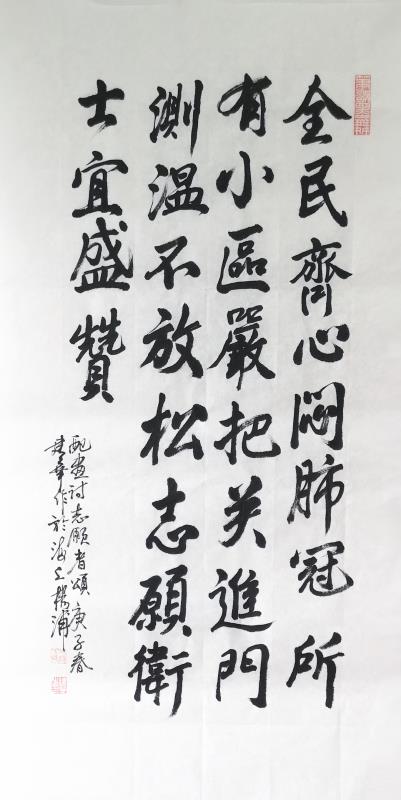 全民齊心闷肺冠所
有小區嚴把关進門
測温不放松志願衛
士宜盛贊
配畫诗志願者頌庚子春
建華作於海上楊浦